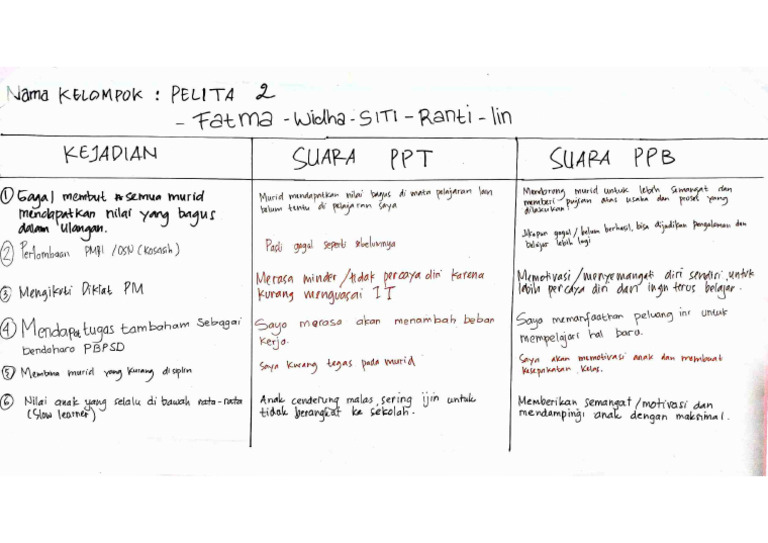 Nama KELOMPOK : PELITA 2
- Fatma - Widha - SITI - Ranti - Iin
KEJADIAN
SUARA PPT
SUARA PPB
① Gagal membuat semua murid
mendapatkan nilai yang bagus
dalam ulangan.
Murid mendapatkan nilai bagus di mata pelajaran lain
belum tentu di pelajaran saya
Mendorong murid untuk lebih semangat dan
memberi pujian atas usaha dan proses yang
dilakukan!
② Perlombaan /OSN (Kosasih)
Pasti gagal seperti sebelumnya
gagal / belum berhasil, bisa dijadikan pengalaman dan
belajar lebih lagi
③ Mengikuti Diklat PM
Merasa minder/tidak percaya diri karena
kurang menguasai IT
Memotivasi/menyemangat diri sendiri, untuk
lebih percaya diri dan ingin terus belajar.
④ Mendapa tugas tambaham sebagai
bendoharo PBPSD
Sayo merasa akan menambah beban
kerja.
Sayo memanfaatkan peluang ini untuk
mempelajari hal baru.
⑤ Membina murid yang kurang disiplin
Saya kurang tegas pada murid
Saya akan memotivasi anak dan membuat
kesepakatan kelas.
⑥ Nilai anak yang selalu di bawah rata-rata
(Slow learner)
Anak cenderung malas, sering ijin untuk
tidak berangkat ke sekolah.
Memberikan semangat/motivasi dan
mendampingi anak dengan maksimal.